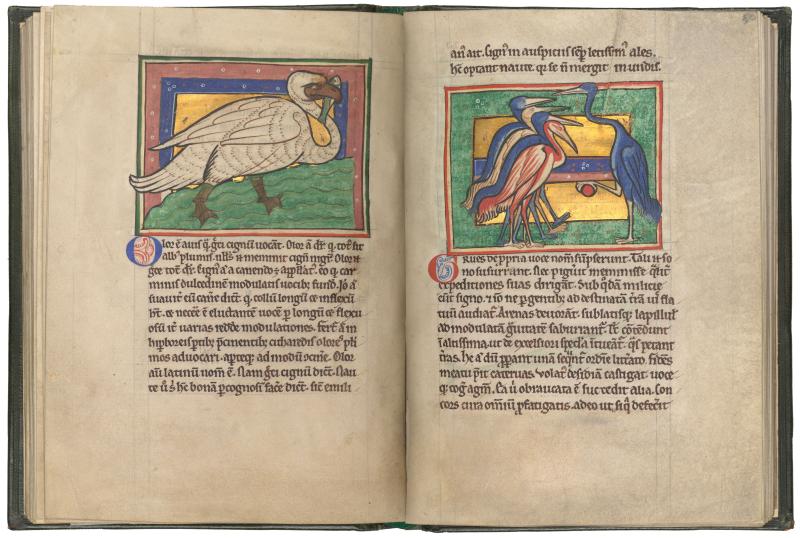 Olor ē auis q̄ greci cignū uocāt. Olor ā dr̄ q. tot̄ sit
alb' plumis. null' .n. meminit cignū nigrū. Olor .n.
grece tot̄ dr̄. Cign' ā a canendo ē appellat'. eo q. car
minis dulcedinē modulatis uocib; fundit. Ideo ā
suauit' eū canere dicūt. q. collū longū & inflexū
habet. & necesse ē eluctantē uocē p longū & flexu
osū iter uarias reddere modulationes. ferūt ā in
hiperboreis partib; p̄cinentib; citharedis olores plu
rimos aduocari. apteq; ad modū concinere. Olor
aū latinū nom̄ ē. nam grece cignū dicit'. Nau
te u' s' hc̄ bonā p̄cognosin facere dicūt. sic̄ emili
an' ait. Cign' in auspiciis semp letissim' ales.
hc̄ optant naute. quia se n̄ mergit in undis.
Grues de propria uoce nom̄ sūpserunt. Tali .n. so
no susurrant. nec piguit meminisse qual̄it
expeditiones suas dirigāt. Sub quodā militie
eūt signo. & so ne pgentib; ad destinata t̄rā ui fla
tuū audiat'. Arenas deuorāt. sublatisq; lapillul'
ad moderatā grauitatē saburrant'. Tc̄ cōtendunt
in altissima. ut de excelsiori specula ītueāt'. quas petant
t̄ras. hee ā dū ppant unā sequnt' ordine litt̄ato. fidens
meatu p̄it cateruas. uolat' desidiā castigat. uoce
q̄ cogit agm̄. Ea ū obraucata ē succedit alia. Con
cors cura om̄iū p fatigatis. adeo ut. siq̄ defecīt